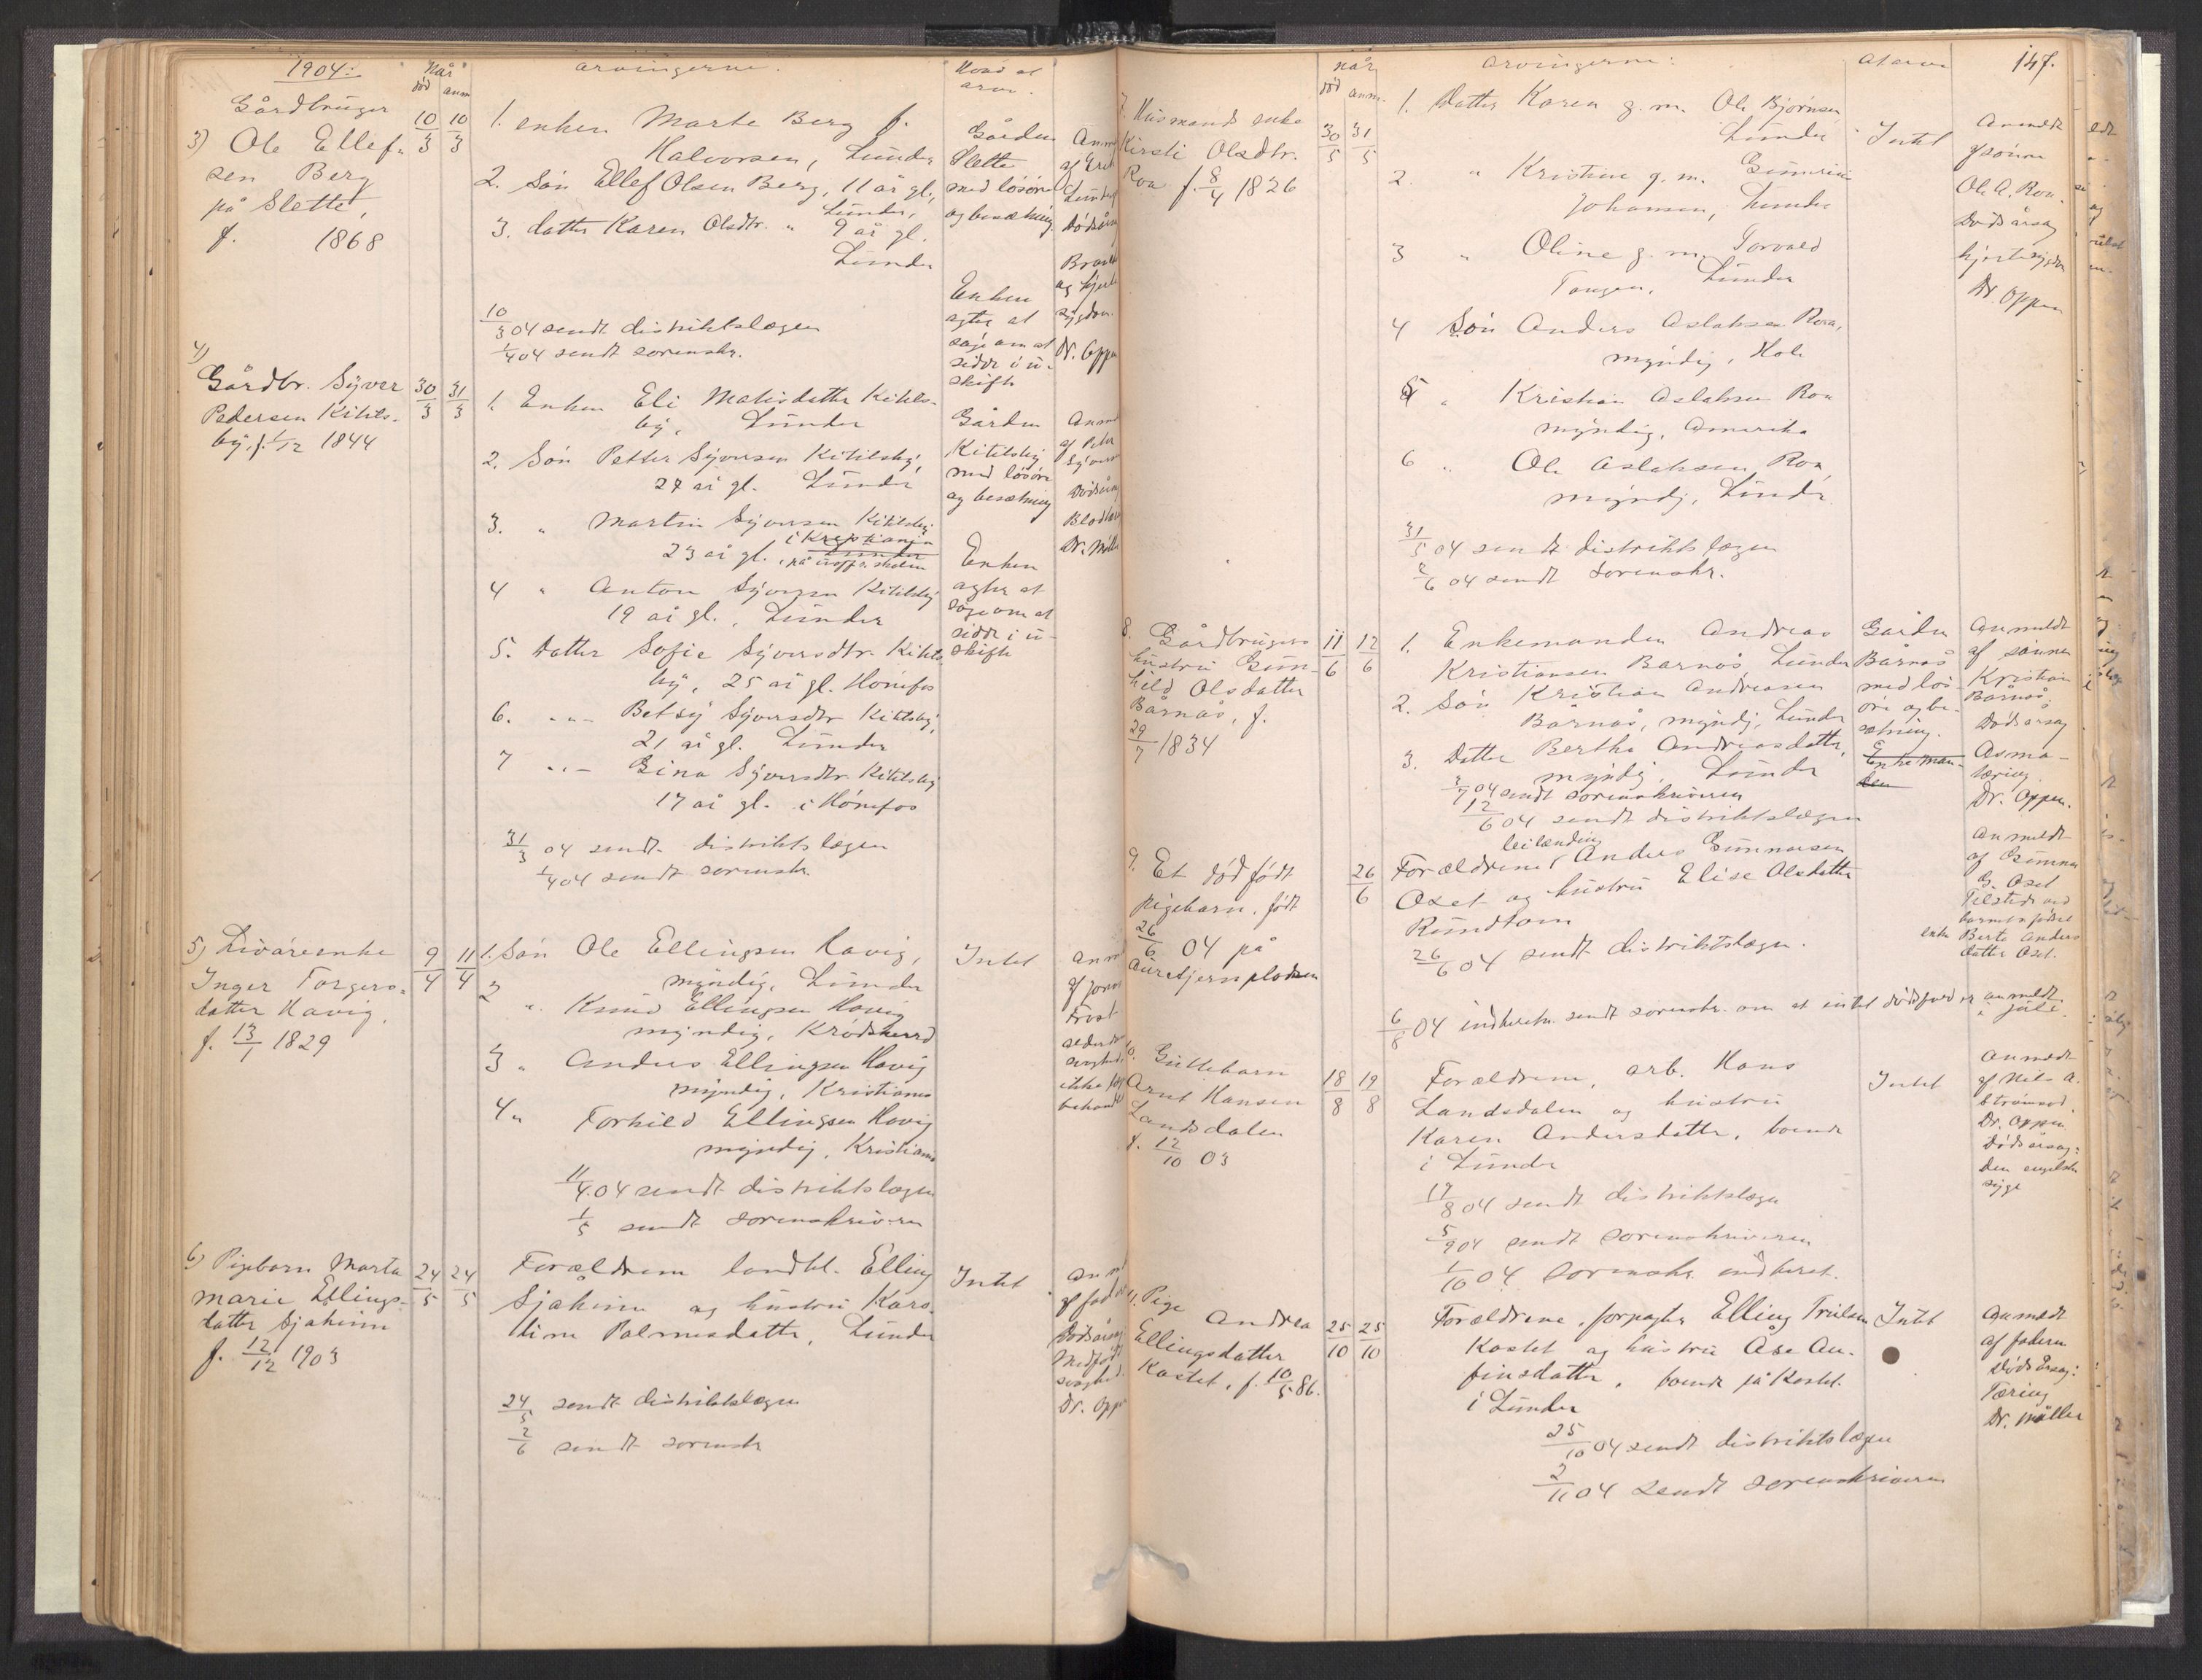 1904:
Når
død anm
arvingerne.
Hvad at arve.
Gårdbruger
3) Ole Ellef-
sen Berg
på Slette,
f. 1868
10/3 10/3
1. enken Marte Berg f.
Halvorsen, Lunder
2. Søn Ellef Olsen Berg, 11 år gl.,
Lunder,
3. datter Karen Olsdtr. " 9 år gl.
Lunder
10/3 04 sendt distriktslægen
1/4 04 sendt sorenskr.
Gården
Slette
med løsøre
og besætning
Enken
agter at
søge om at
sidde i u-
skifte
Dødsårsag
og hjerte
sygdom
Dr. Oppen
4)
Gårdbr. Syver
Pedersen Kitils-
by, f. 1/12 1844
30/3 31/3
1. Enken Eli Matisdatter Kitils-
by, Lunder
2. Søn Petter Syversen Kitilsby,
27 år gl. Lunder
3. " Martin Syversen Kitilsby
i Kristiania
23 år gl., på uoffr. skolen
4 " Anton Syversen Kitilsby
19 år gl., Lunder
5. Datter Sofie Syversdtr. Kitils-
by, 25 år gl. Hønefos
6. " - Betsy Syversdtr Kitilsby,
21 år gl. Lunder
7 " - Gina Syversdtr. Kitilsby
17 år gl. i Hønefos
31/3 04 sendt distriktslægen
1/4 04 sendt sorenskr.
Gården
Kitilsby
med løsøre
og besætning
Enken
agter at
søge om at
sidde i u-
skifte
af Peter
Syversen
Dødsårsag
Dr. Møller
5) Livøreenke
Inger Torgers-
datter Havig,
f. 13/1 1829
9/4 11/4
1. Søn Ole Ellingsen Havig,
myndig, Lunder
2 " Knud Ellingsen Havig
myndig, Krødsherred
3 " Anders Ellingsen Havig
myndig, Kristiania
4 " Torhild Ellingsen Havig
myndig, Kristiania
11/4 04 sendt distriktslægen
1/5 sendt sorenskriveren
Intet
6) Pigebarn Marta
Marie Ellings-
datter Sjakinn
f. 12/12 1903
24/5 24/5
Forældrene landhl. Elling
Sjakinn og hustru Karo-
line Palmesdatter, Lunder
24/5 sendt distriktslægen
2/6 sendt sorenskr
Intet
Dødsårsag
Medfødt
svaghed
Dr. Oppen
Når
død anm.
arvingerne:
at arve
147.
7. Husmands enke
Kirsti Olsdtr.
Roa f. 8/4 1826
30/5 31/5
1. Datter Karen g. m. Ole Bjørnsen
Lunder
2. " Kristine g. m. Gunerius
Johansen, Lunder
3 " Oline g. m. Torvald
Tangen, Lunder
4 Søn Anders Aslaksen Roa,
myndig, Hole
5 " Kristian Aslaksen Roa
myndig, Amerika
6 " Ole Aslaksen Roa
myndig, Lunder
31/5 04 sendt distriktslægen
2/6 04 sendt sorenskr.
Intet
Anmeldt
af sønnen
Ole A. Roa.
Dødsårsag
hjertesygdom
Dr. Oppen
8. Gårdbrugers
hustru Gun-
hild Olsdatter
Bårnås, f.
29/7 1834
11/6 12/6
1. Enkemanden Andreas
Kristiansen Bårnås, Lunder
2. Søn Kristian Andreasen
Bårnås, myndig, Lunder
3. Datter Berthe Andreasdatter,
myndig, Lunder
1/7 04 sendt sorenskriveren
12/6 04 sendt distriktslægen
Gården
Bårnås
med løs-
øre og be-
sætning.
Enkeman-
den
Anmeldt
af sønnen
Kristian
Bårnås
Dødsårsag
Asma-
tæring
Dr. Oppen.
9. Et dødfødt
pigebarn, født
26/6 04 på
Auretjernpladsen
26/6
leilænding
Forældrene Anders Gunnarsen
Oset og hustru Elise Olsdatter
Rundtom
26/6 04 sendt distriktslægen.
6/8 04 indberetn. sendt sorenskr. om at intet dødsfald er anmeldt
i juli.
Anmeldt
af Gunnar
G. Oset
Tilstede ved
barnets fødsel
enke Berte Anders
datter Oset.
10. Guttebarn
Arnt Hansen
Landsdalen
f. 12/10 03
18/8 19/8
Forældrene, arb. Hans
Landsdalen og hustru
Karen Andersdatter, boende
i Lunder
19/8 04 sendt distriktslægen
5/9 04 sendt sorenskriveren
1/10 04 sorenskr. indberet.
Intet
Anmeldt
af Nils A.
Strømsod.
Dr. Oppen
Dødsårsag:
Den engelske
syge
11. Pige
Andrea
Ellingsdatter
Kastet, f. 10/5 86.
25/10 25/10
Forældrene, forpagter Elling Trulsen
Kastet og hustru Åse An-
finsdatter, boende på Kastet
i Lunder
25/10 04 sendt distriktslægen
2/11 04 sendt sorenskriveren
Intet
Anmeldt
af faderen
Dødsårsag:
Tæring
Dr. Møller